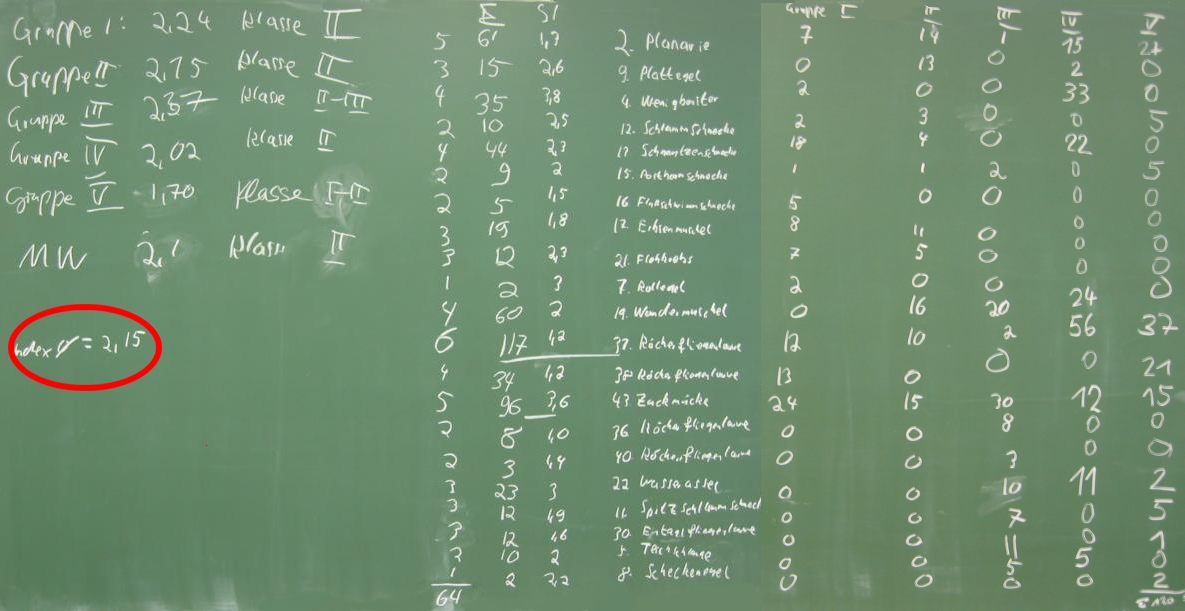 Gruppe I: 2,24 Klasse II
Gruppe II 2,15 Klasse II
Gruppe III 2,37 Klasse II-III
Gruppe IV 2,02 Klasse II
Gruppe V 1,70 Klasse I-II
MW 2,1 Klasse II
Index = 2,15
Σ SI Gruppe I II III IV V
5 61 1,7 2. Planarie 7 14 1 15 24
3 15 2,6 9. Plattegel 0 13 0 2 0
4 35 3,8 4. Wenigborster 2 0 0 33 0
2 10 2,5 12. Schlammschnecke 2 3 0 0 5
4 44 2,3 17. Schnauzenschnecke 18 4 0 22 0
2 9 2 15. Posthornschnecke 1 1 2 0 5
2 5 1,5 16 5 0 0 0 0
3 19 1,8 17. Erbsenmuschel 8 11 0 0 0
3 12 2,3 21. Flohkrebs 7 5 0 0 0
1 2 3 7. Rollegel 2 0 0 0 0
4 60 2 19. Wandermuschel 0 16 20 24 0
6 117 1,2 37. Köcherfliegenlarve 12 10 2 56 37
4 34 1,2 38 Köcherfliegenlarve 13 0 0 0 21
5 96 3,6 43 Zuckmücke 24 15 30 12 15
2 8 1,0 36 Köcherfliegenlarve 0 0 8 0 0
2 3 1,4 40. Köcherfliegenlarve 0 0 3 0 0
3 23 3 22 Wasserassel 0 0 10 11 2
3 12 1,9 11. Spitzschlammschneck 0 0 7 0 5
3 12 1,6 30. Eintagsfliegenlarve 0 0 11 0 1
3 10 2 5. 0 0 5 5 0
1 2 2,2 8. Scheckenegel 0 0 0 0 2
64